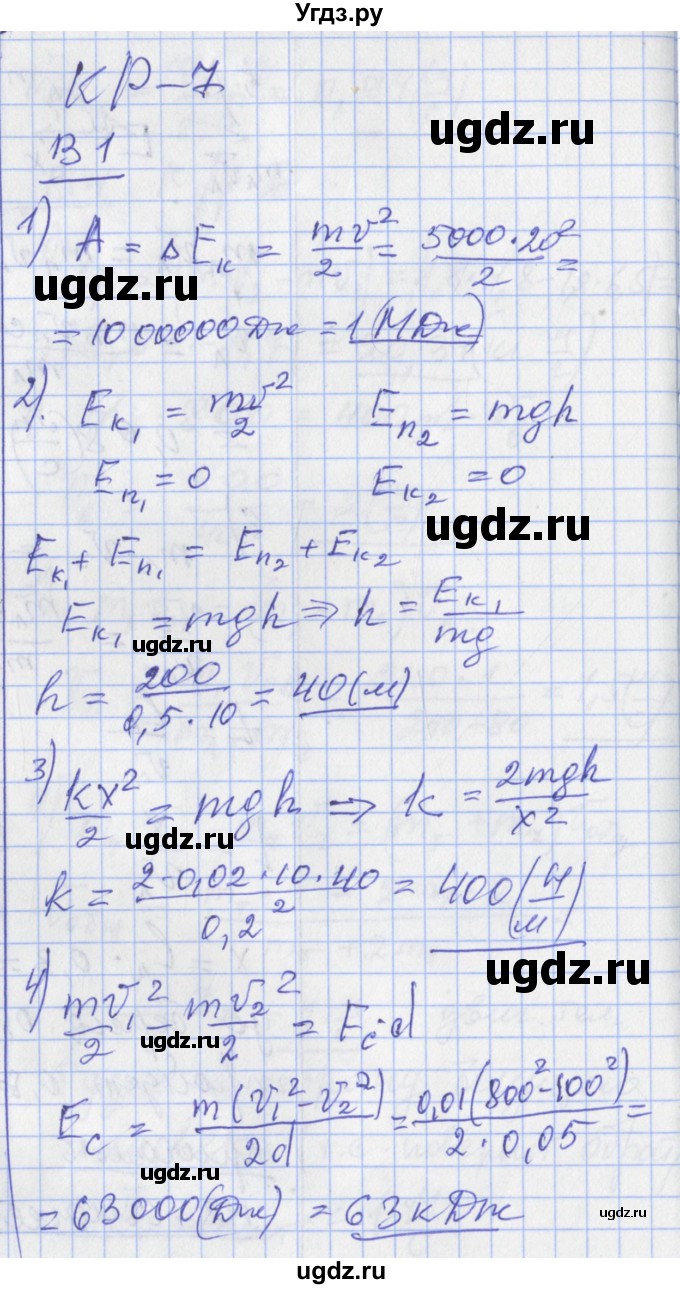 Угдз.ру
КР-7
ugdz.ru
В1
1) A = ΔEк = mv²/2 = 5000·20²/2 =
ugdz.ru
= 1000000Дж = 1(МДж)
2). Eк₁ = mv²/2   Eп₂ = mgh
Eп₁ = 0   Eк₂ = 0
ugdz.ru
Eк₁ + Eп₁ = Eп₂ + Eк₂
Eк₁ = mgh ⇒ h = Eк₁/mg
ugdz.ru
h = 200/0,5·10 = 40(м)
3) kx²/2 = mgh ⇒ k = 2mgh/x²
ugdz.ru
k = 2·0,02·10·40/0,2² = 400(Н/м)
ugdz.ru
4) mv₁²/2 - mv₂²/2 = Ec·d
ugdz.ru
Ec = m(v₁²-v₂²)/2d = 0,01(800²-100²)/2·0,05 =
ugdz.ru
= 63000(Дж) = 63кДж
ugdz.ru
ugdz.ru